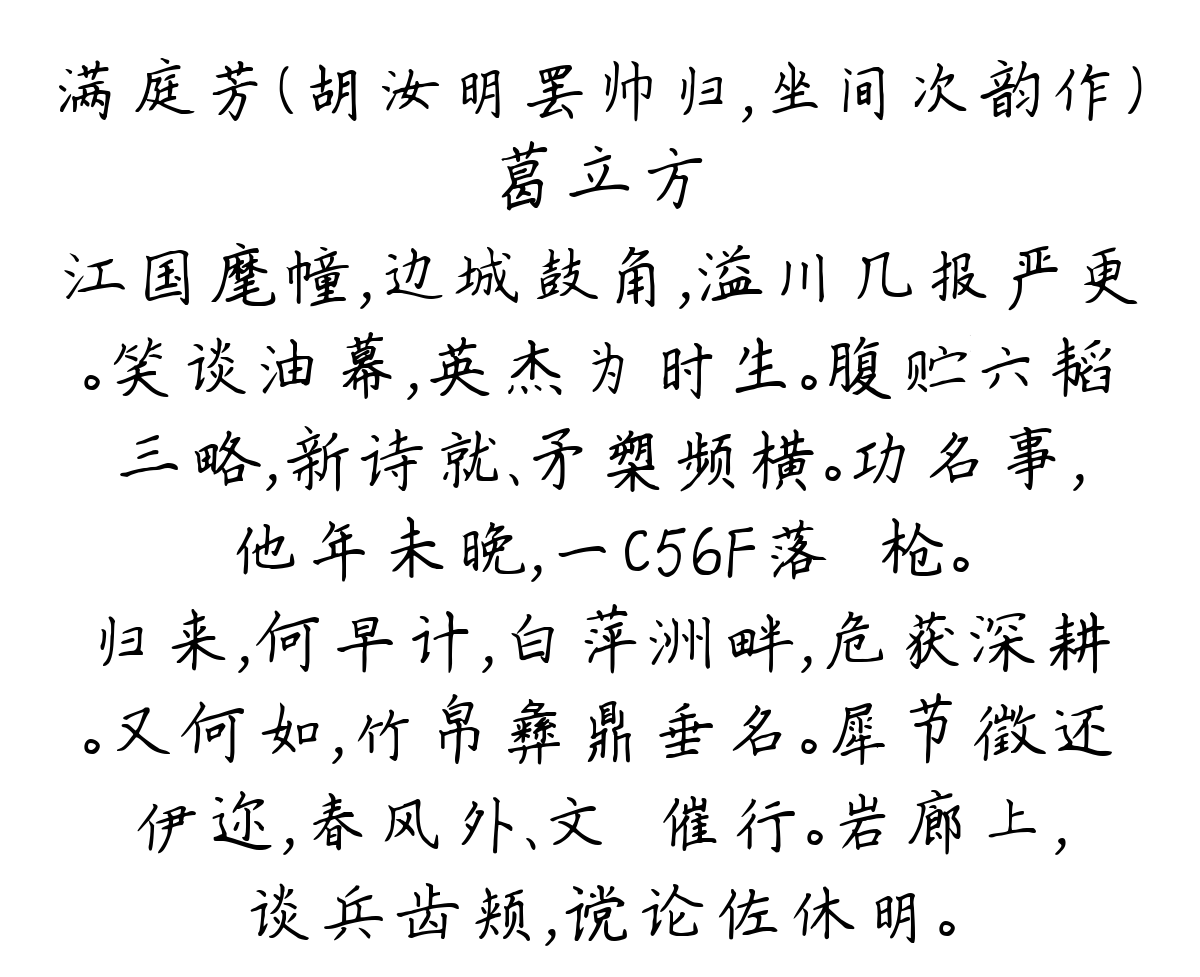 满庭芳(胡汝明罢帅归,坐间次韵作)
葛立方
江国麾幢,边城鼓角,溢川几报严更
。笑谈油幕,英杰为时生。腹贮六韬
三略,新诗就、矛槊频横。功名事,
他年未晚,一C56F落 枪。
归来,何早计,白萍洲畔,危获深耕
。又何如,竹帛彝鼎垂名。犀节徵还
伊迩,春风外、文 催行。岩廊上,
谈兵齿颊,谠论佐休明。